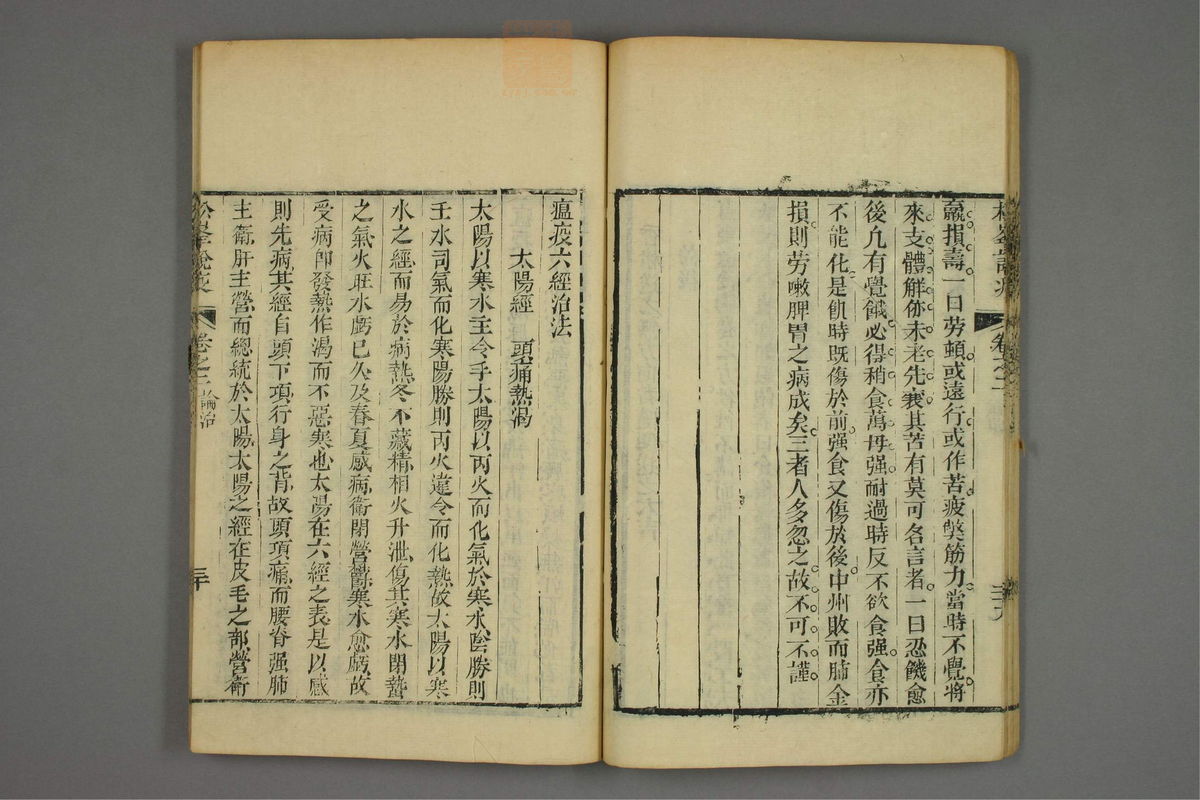 松峯說疫
卷之二
二十九
羸損壽一曰勞頓或遠行或作苦疲獘筋力當時不覺將
來支體解㑊未老先衰其苦有莫可名言者一曰忍饑愈
後凢有覺餓必得稍食萬毋强耐過時反不欲食强食亦
不能化是飢時既傷於前强食又傷於後中州敗而肺金
損則勞嗽脾胃之病成矣三者人多忽之故不可不謹
瘟疫六經治法
太陽經　頭痛熱渴
太陽以寒水主令手太陽以丙火而化氣於寒水陰勝則
壬水司氣而化寒陽勝則丙火違令而化熱故太陽以寒
水之經而易於病熱冬不藏精相火升泄傷其寒水閉蟄
之氣火旺水虧已久及春夏感病衛閉營鬱寒水愈虧故
受病即發熱作渴而不惡寒也太陽在六經之表是以感
則先病其經自頭下項行身之背故頭項痛而腰脊强肺
主衛肝主營而總統於太陽太陽之經在皮毛之部營衛
松峯說疫
卷之二 論治
三十